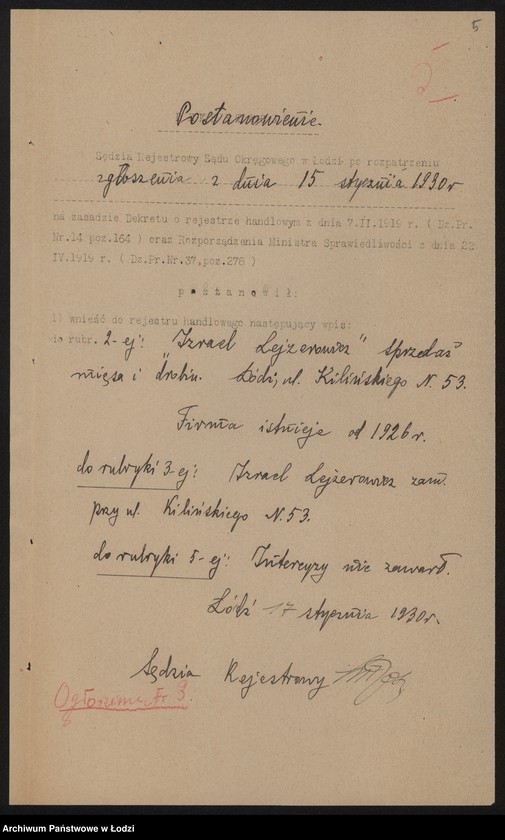 5
5
Postanowienie.
Sędzia Rejestrowy Sądu Okręgowego w Łodzi po rozpatrzeniu
zgłoszenia z dnia 15 stycznia 1930 r
na zasadzie Dekretu o rejestrze handlowym z dnia 7.II.1919 r. ( Dz.Pr.
Nr.14 poz.164 ) oraz Rozporządzenia Ministra Sprawiedliwości z dnia 22
IV.1919 r. ( Dz.Pr.Nr.37,poz.278 )
p o s t a n o w i ł:
1) wnieść do rejestru handlowego następujący wpis:
do rubr. 2-ej: "Izrael Lejzerowicz" sprzedaż
mięsa i drobiu. Łódź, ul. Kilińskiego N. 53.
Firma istnieje od 1926 r.
do rubryki 3-ej: Izrael Lejzerowicz zam.
przy ul. Kilińskiego N. 53.
do rubryki 5-ej: Intercyzy nie zawarł.
Łódź 17 stycznia 1930 r.
Sędzia Rejestrowy
Ogłoszenie Nr 3.
Archiwum Państwowe w Łodzi